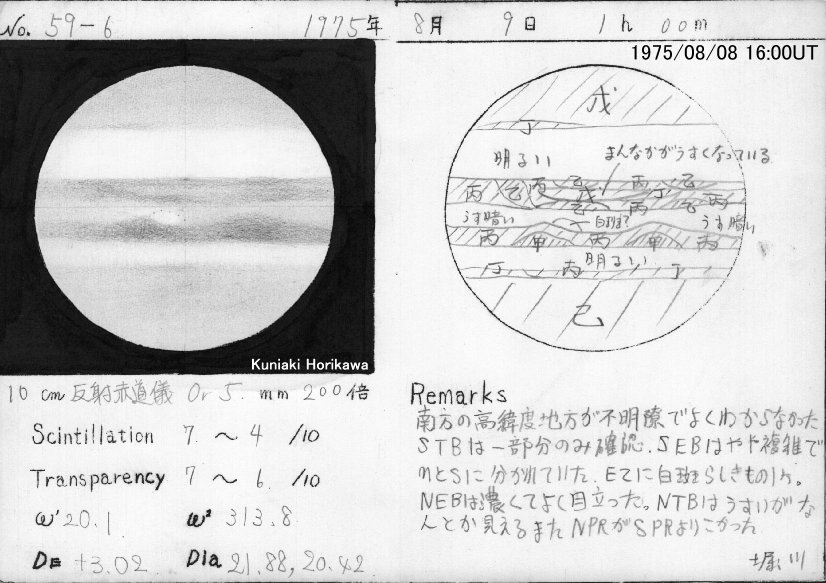 No. 59-6 1975年 8月 9日 1h 00m
1975/08/08 16:00UT
戊
丁
明るい まんなかがうすくなっている
丙 乙 丙 乙 戊 丙 丁 乙
乙 丙 乙 丙
うす暗い 白斑? うす暗い
丙 甲 丙 甲 丙
明るい
丁 丙 丁
己
Kuniaki Horikawa
10 cm 反射赤道儀 Or 5. mm 200倍
Scintillation 7 ~ 4 /10
Transparency 7 ~ 6 /10
ω¹ 20.1 ω² 313.8
DE +3.02 Dia 21.88, 20.42
Remarks
南方の高緯度地方が不明瞭でよくわからなかった
STBは一部分のみ確認. SEBはやや複雑で
NとSに分かれていた. EZに白斑らしきもの1ケ。
NEBは濃くてよく目立った。NTBはうすいがな
んとか見えるまたNPRがSPRよりこかった
堀川